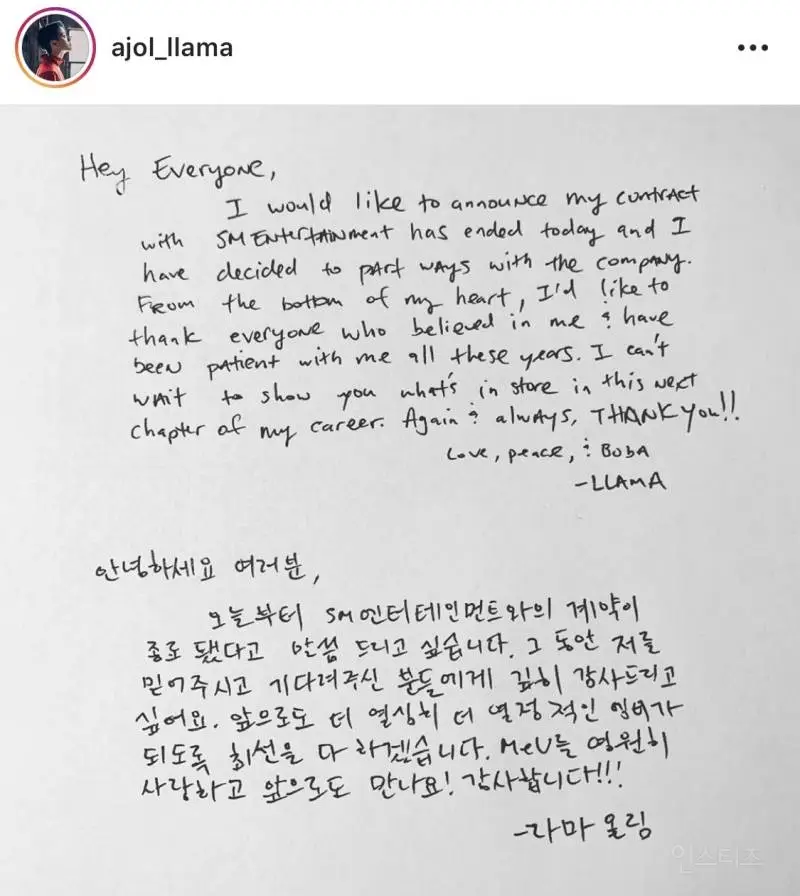 ajol_llama
Hey Everyone,
I would like to announce my contract
with SM Entertainment has ended today and I
have decided to part ways with the company.
From the bottom of my heart, I'd like to
thank everyone who believed in me & have
been patient with me all these years. I can't
wait to show you what's in store in this next
chapter of my career. Again & always, THANK You!!
Love, peace, & Boba
-LLAMA
안녕하세요 여러분,
오늘부터 SM엔터테인먼트와의 계약이
종료 됐다고 말씀 드리고 싶습니다. 그 동안 저를
믿어주시고 기다려주신 분들에게 깊히 감사드리고
싶어요. 앞으로도 더 열심히 더 열정적인 엠버가
되도록 최선을 다 하겠습니다. MeU들 영원히
사랑하고 앞으로도 만나요! 감사합니다!!!
-라마 올림
인스티즈